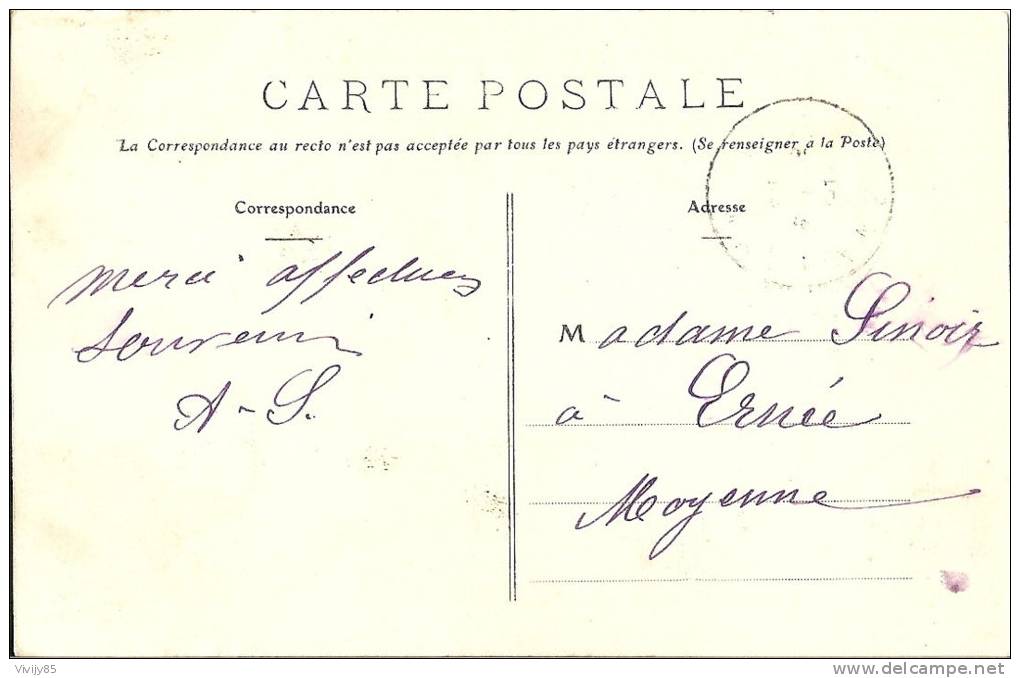 CARTE POSTALE
La Correspondance au recto n'est pas acceptée par tous les pays étrangers. (Se renseigner à la Poste)
Correspondance
merci affectueux
souvenir
A-S.
Adresse
Madame Sinoir
à Ernée
Mayenne
Vivijy85
www.delcampe.net